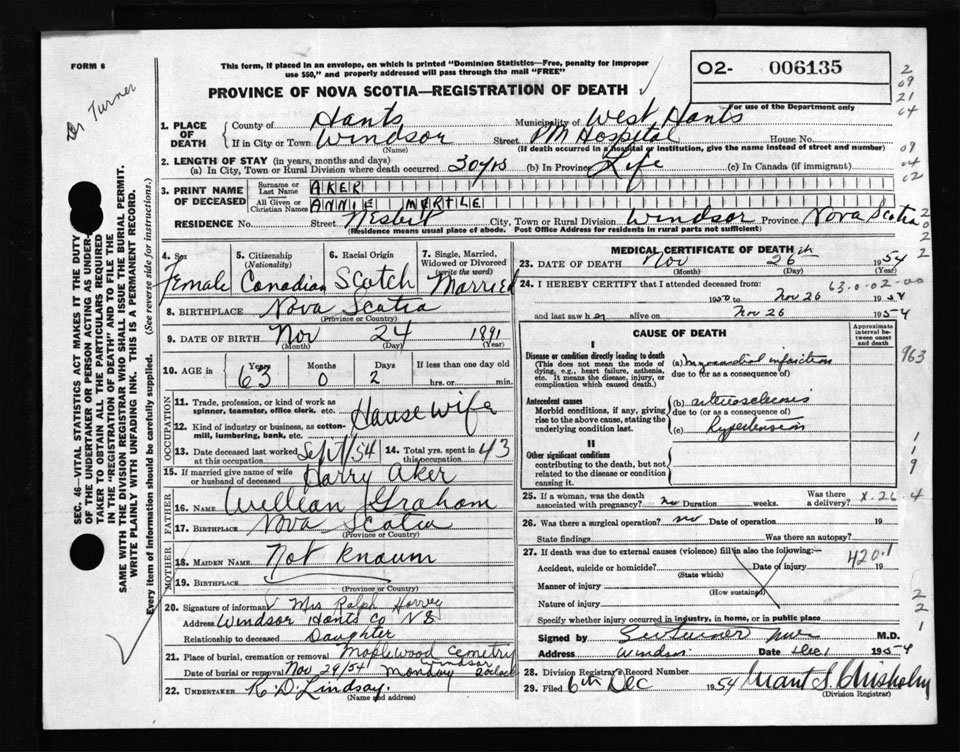 FORM 6
Dr Turner
This form, if placed in an envelope, on which is printed "Dominion Statistics—Free, penalty for improper
use $50," and properly addressed will pass through the mail "FREE"
PROVINCE OF NOVA SCOTIA—REGISTRATION OF DEATH
02- 006135
For use of the Department only
2
09
21
04
09
04
02
2
0
2
2
SEC. 46—VITAL STATISTICS ACT MAKES IT THE DUTY
OF THE UNDERTAKER OR PERSON ACTING AS UNDER-
TAKER TO OBTAIN ALL THE PARTICULARS REQUIRED
IN THE "REGISTRATION OF DEATH" AND TO FILE THE
SAME WITH THE DIVISION REGISTRAR WHO SHALL ISSUE THE BURIAL PERMIT.
WRITE PLAINLY WITH UNFADING INK. THIS IS A PERMANENT RECORD.
Every item of information should be carefully supplied. (See reverse side for instructions.)
1. PLACE OF DEATH
County of Hants Municipality of West Hants
If in City or Town Windsor Street PM Hospital House No.
(Name) (If death occurred in a hospital or institution, give the name instead of street and number)
2. LENGTH OF STAY (in years, months and days)
(a) In City, Town or Rural Division where death occurred 30 yrs (b) In Province Life (c) In Canada (if immigrant)
3. PRINT NAME OF DECEASED
Surname or Last Name AKER
All Given or Christian Names ANNIE MERTLE
RESIDENCE No. Street Nesbit City, Town or Rural Division Windsor Province Nova Scotia
(Residence means usual place of abode. Post Office Address for residents in rural parts not sufficient)
4. Sex Female
5. Citizenship (Nationality) Canadian
6. Racial Origin Scotch
7. Single, Married, Widowed or Divorced (write the word) Married
8. BIRTHPLACE Nova Scotia
(Province or Country)
9. DATE OF BIRTH Nov 24 1891
(Month) (Day) (Year)
10. AGE in Years Months Days If less than one day
63 0 2 hrs. or min.
OCCUPATION
11. Trade, profession, or kind of work as
spinner, teamster, office clerk, etc. House wife
12. Kind of industry or business, as cotton-
mill, lumbering, bank, etc.
13. Date deceased last worked at this occupation Sept/54 14. Total yrs. spent in this occupation 43
15. If married give name of wife
or husband of deceased Harry Aker
FATHER
16. NAME William Graham
17. BIRTHPLACE Nova Scotia
(Province or Country)
MOTHER
18. MAIDEN NAME Not Known
19. BIRTHPLACE
(Province or Country)
20. Signature of informant Mrs Ralph Harvey
Address Windsor Hants Co NS
Relationship to deceased Daughter
21. Place of burial, cremation or removal Maplewood Cemetry
Windsor
Date of burial or removal Nov 29/54 Monday 2 oclock
22. UNDERTAKER R. D. Lindsay.
(Name and address)
MEDICAL CERTIFICATE OF DEATH
23. DATE OF DEATH Nov 26th 1954
(Month) (Day) (Year)
63-0-02-00
24. I HEREBY CERTIFY that I attended deceased from:
1950 to Nov 26 1954
and last saw her alive on Nov 26 1954
CAUSE OF DEATH
Approximate interval between onset and death
I
Disease or condition directly leading to death
(This does not mean the mode of
dying, e.g., heart failure, asthenia,
etc. It means the disease, injury, or
complication which caused death.)
(a) myocardial infarction
due to (or as a consequence of)
963
Antecedent causes
Morbid conditions, if any, giving
rise to the above cause, stating the
underlying condition last.
(b) arteriosclerosis
due to (or as a consequence of)
(c) Hypertension
II
Other significant conditions
contributing to the death, but not
related to the disease or condition
causing it.
1
1
9
25. If a woman, was the death
associated with pregnancy? no Duration weeks. Was there a delivery?
X-26-4
26. Was there a surgical operation? no Date of operation 19
State findings Was there an autopsy?
27. If death was due to external causes (violence) fill in also the following:—
420.1
Accident, suicide or homicide? Date of injury 19
(State which)
Manner of injury
(How sustained)
Nature of injury
Specify whether injury occurred in industry, in home, or in public place
2
2
1
Signed by M.D.
Address Windsor Date Dec 1 1954
28. Division Registrar's Record Number
29. Filed 6th Dec 1954 Chisholm
(Division Registrar)